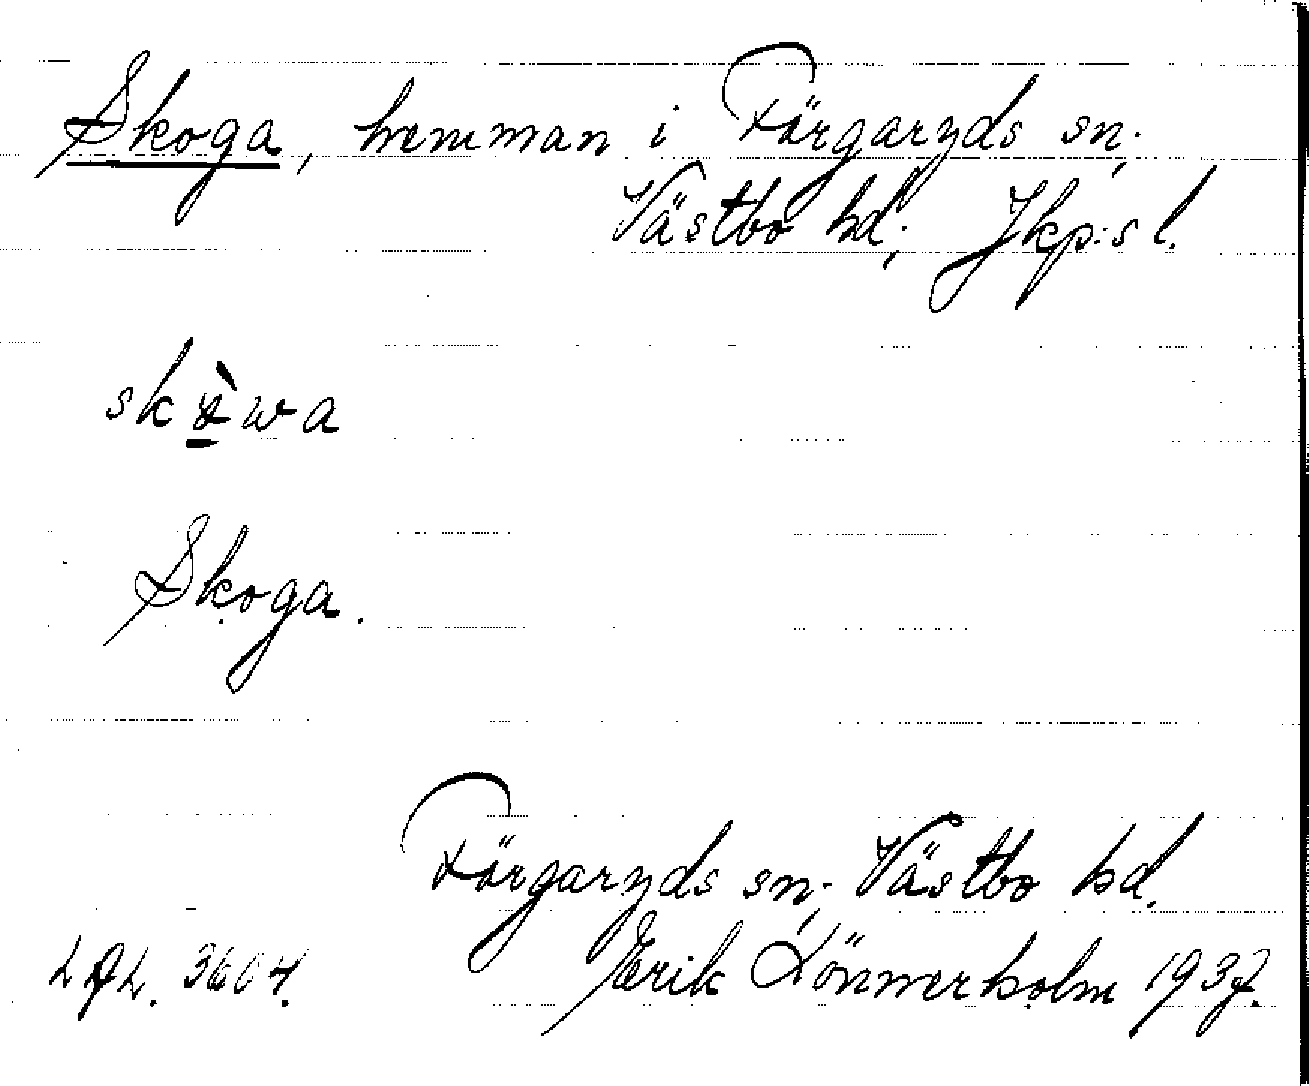 Skoga, hemman i Färgaryds sn;
Västbo hd; Jkp:s l.
Skoga.
Färgaryds sn; Västbo hd.
3604. Erik Lönnerholm 1937.